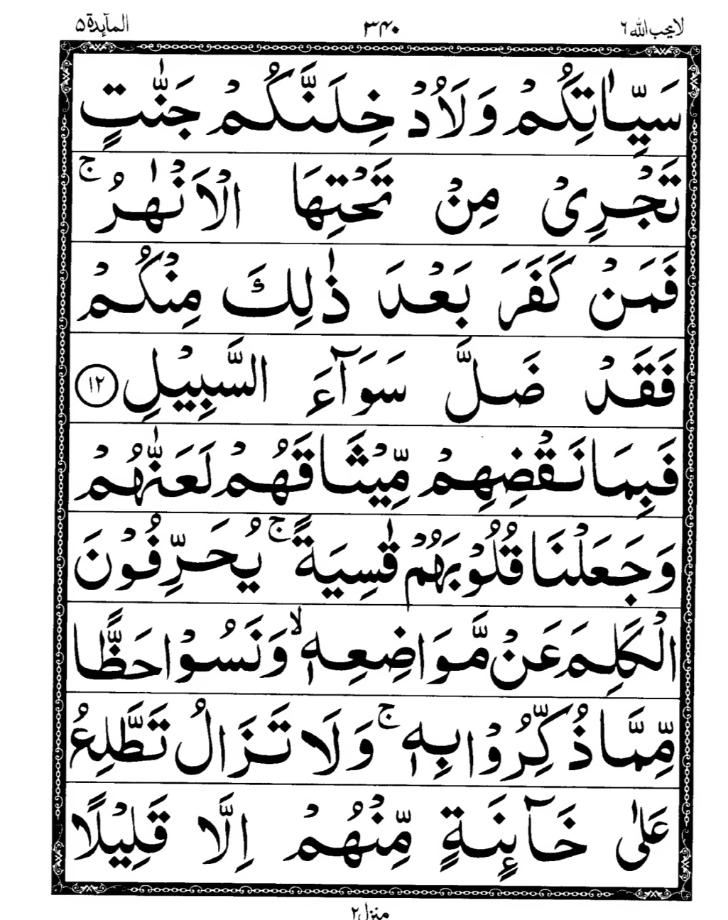 لا یحب الله ٦ ۳۴۰ المآىِٕدة ۵
سَیِّاٰتِكُمْ وَلَاُدْخِلَنَّكُمْ جَنّٰتٍ
تَجْرِیْ مِنْ تَحْتِهَا الْاَنْهٰرُ ۚ
فَمَنْ كَفَرَ بَعْدَ ذٰلِكَ مِنْكُمْ
فَقَدْ ضَلَّ سَوَآءَ السَّبِیْلِ ﴿۱۲﴾
فَبِمَا نَقْضِهِمْ مِّیْثَاقَهُمْ لَعَنّٰهُمْ
وَجَعَلْنَا قُلُوْبَهُمْ قٰسِیَةً ۚ یُحَرِّفُوْنَ
الْكَلِمَ عَنْ مَّوَاضِعِهٖ ۙ وَنَسُوْا حَظًّا
مِّمَّا ذُكِّرُوْا بِهٖ ۚ وَلَا تَزَالُ تَطَّلِعُ
عَلٰی خَآىِٕنَةٍ مِّنْهُمْ اِلَّا قَلِیْلًا
منزل ۲